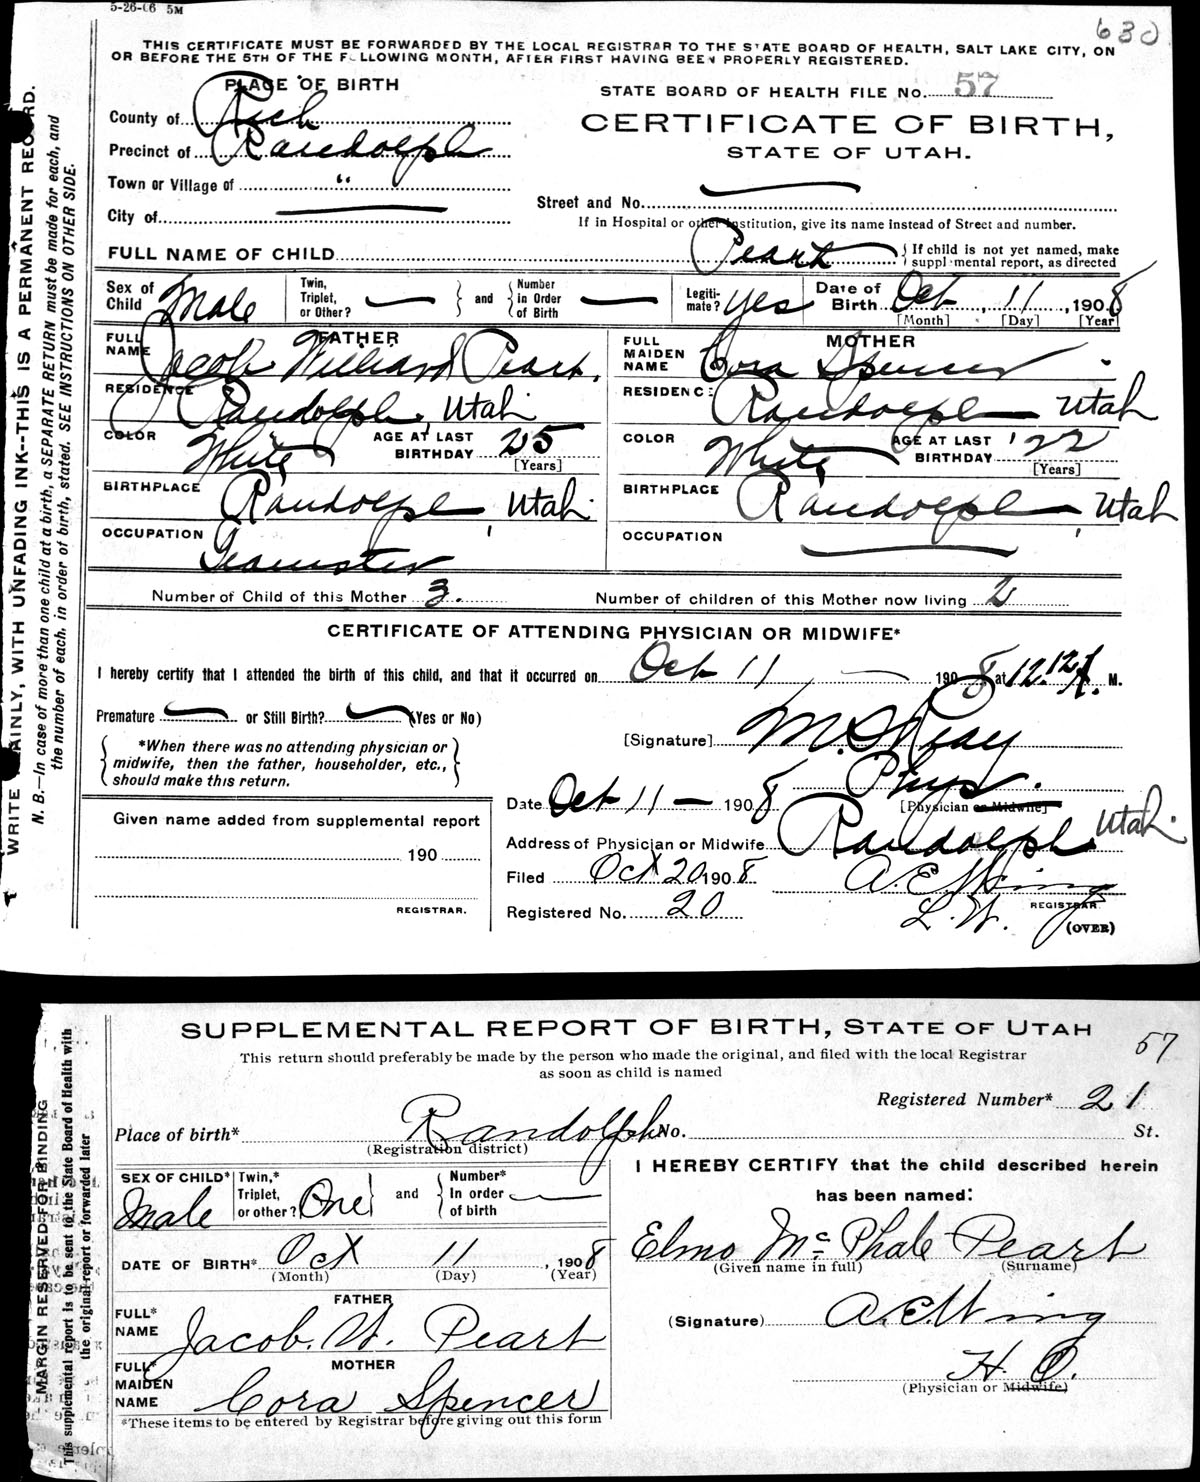 5-26-06 5M
630
THIS CERTIFICATE MUST BE FORWARDED BY THE LOCAL REGISTRAR TO THE STATE BOARD OF HEALTH, SALT LAKE CITY, ON
OR BEFORE THE 5TH OF THE FOLLOWING MONTH, AFTER FIRST HAVING BEEN PROPERLY REGISTERED.
PLACE OF BIRTH
STATE BOARD OF HEALTH FILE NO. 57
County of Rich
CERTIFICATE OF BIRTH,
Precinct of Randolph
STATE OF UTAH.
Town or Village of "
Street and No.
City of
If in Hospital or other institution, give its name instead of Street and number.
FULL NAME OF CHILD Peart { If child is not yet named, make
supplemental report, as directed
Sex of Child Male Twin, Triplet, or Other? — } and { Number in Order of Birth — Legiti-mate? Yes Date of Birth Oct, 11, 1908
[Month] [Day] [Year]
FATHER
FULL NAME Jacob Williard Peart.
RESIDENCE Randolph, Utah
COLOR White AGE AT LAST BIRTHDAY 25
[Years]
BIRTHPLACE Randolph, Utah
OCCUPATION Teamster
MOTHER
FULL MAIDEN NAME Cora Spencer
RESIDENCE Randolph Utah
COLOR White AGE AT LAST BIRTHDAY 22
[Years]
BIRTHPLACE Randolph, Utah
OCCUPATION
Number of Child of this Mother 3. Number of children of this Mother now living 2
CERTIFICATE OF ATTENDING PHYSICIAN OR MIDWIFE*
I hereby certify that I attended the birth of this child, and that it occurred on Oct 11, 1908 at 12.12 A. M.
Premature — or Still Birth? — (Yes or No)
*When there was no attending physician or
midwife, then the father, householder, etc.,
should make this return.
[Signature] M. S. Reay
Phys.
Date Oct 11 — 1908 [Physician or Midwife]
Address of Physician or Midwife Randolph, Utah.
Filed Oct 20 1908 A. E. Wing
REGISTRAR.
Registered No. 20 L. W.
(OVER)
Given name added from supplemental report
190
REGISTRAR.
WRITE PLAINLY, WITH UNFADING INK--THIS IS A PERMANENT RECORD.
N. B.—In case of more than one child at a birth, a SEPARATE RETURN must be made for each, and
the number of each, in order of birth, stated. SEE INSTRUCTIONS ON OTHER SIDE.
SUPPLEMENTAL REPORT OF BIRTH, STATE OF UTAH
57
This return should preferably be made by the person who made the original, and filed with the local Registrar
as soon as child is named
Registered Number* 21
Place of birth* Randolph No. St.
(Registration district)
SEX OF CHILD* Male Twin,* Triplet, or other? One } and { Number* In order of birth —
DATE OF BIRTH* Oct 11, 1908
(Month) (Day) (Year)
FATHER
FULL* NAME Jacob. W. Peart
MOTHER
FULL* MAIDEN NAME Cora Spencer
*These items to be entered by Registrar before giving out this form
I HEREBY CERTIFY that the child described herein
has been named:
Elmo McPhale Peart
(Given name in full) (Surname)
(Signature) A. E. Wing
H. O.
(Physician or Midwife)
MARGIN RESERVED FOR BINDING
This supplemental report is to be sent to the State Board of Health with
the original report or forwarded later